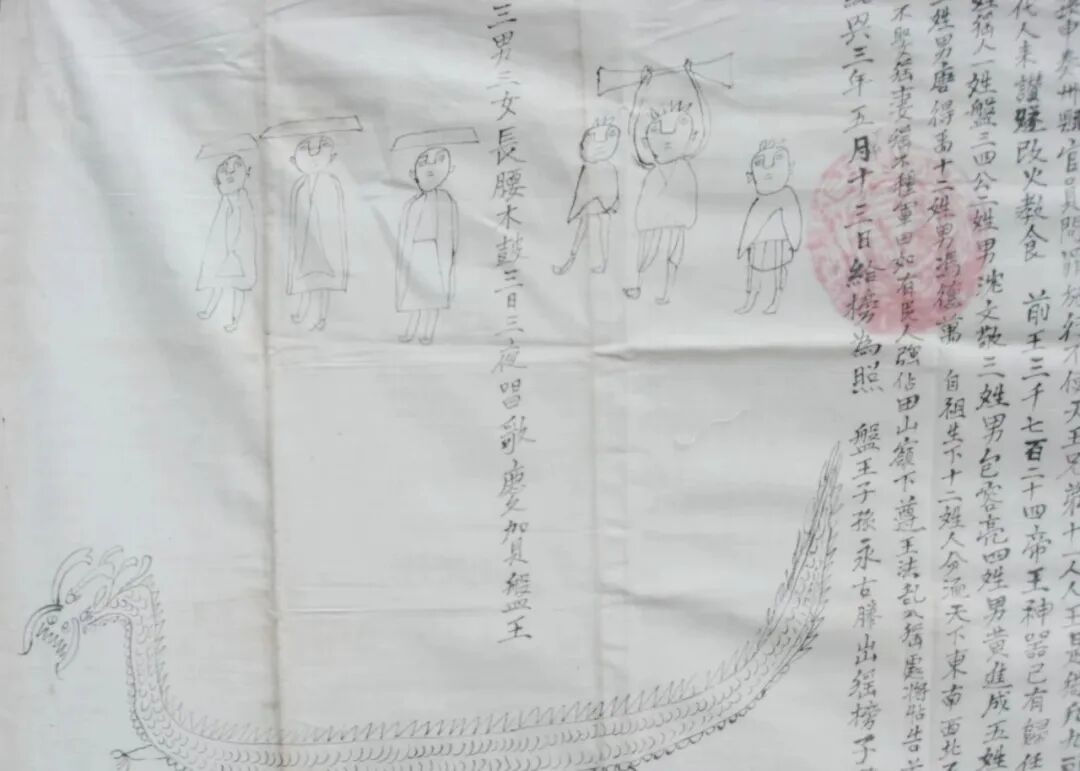 官員問罪施行不使天王兄弟十一人人王
代人來讃嫁改火教食 前王三千七百二十四帝王神器已有歸任
姓稱人一姓盤三四公二姓男沈文敬三姓男包容亮四姓男黄進成五姓
姓男唐得萬十二姓男馮德萬 自祖生下十二姓人分流天下東南西北
不娶猺妻猺不種軍田如有民人強佔田山嶺下遵王法乱入猺處將帖告
興三年五月十三日給榜為照 盤王子孫永古騰出猺榜子
三男三女長腰木鼓三日三夜唱歌慶加貝盤王